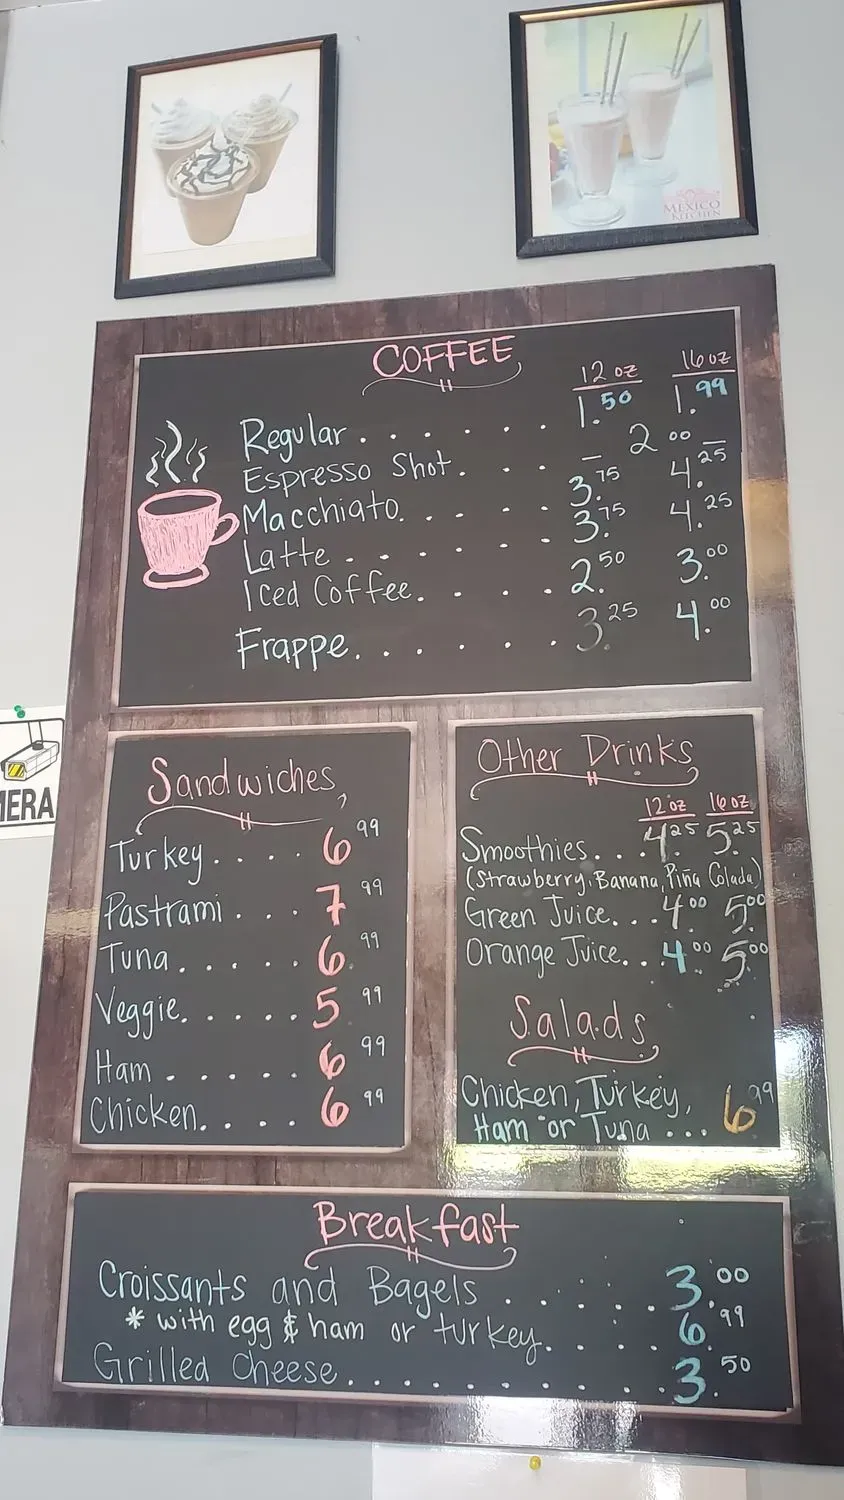 MEXICO
KITCHEN
COFFEE
12 oz 16 oz
Regular. . . . . . . 1.50 1.99
Espresso Shot. . . . – 2 00 –
Macchiato. . . . . 3.75 4.25
Latte . . . . . . 3.75 4.25
Iced Coffee. . . . . 2.50 3.00
Frappe. . . . . . . 3.25 4.00
MERA
Sandwiches
Turkey. . . . 6 99
Pastrami . . . 7 99
Tuna . . . . . 6 99
Veggie. . . . . 5 99
Ham . . . . . 6 99
Chicken. . . . . 6 99
Other Drinks
12 oz 16 oz
Smoothies. . . 4.25 5.25
(Strawberry, Banana, Piña Colada)
Green Juice. . . 4.00 5.00
Orange Juice. . . 4 00 5.00
Salads
Chicken, Turkey,
Ham or Tuna . . . 6 99
Breakfast
Croissants and Bagels . . . . . . 3.00
* with egg & ham or turkey. . . . 6.99
Grilled Cheese. . . . . . . . . . . . 3.50